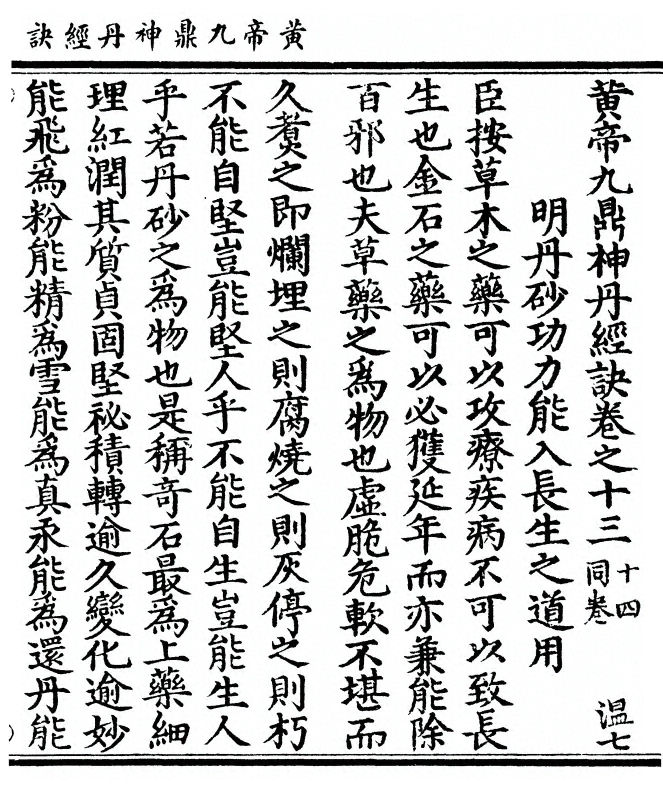 黃帝九鼎神丹經訣
黃帝九鼎神丹經訣卷之十三 十四同卷 溫七
明丹砂功力能入長生之道用
臣按草木之藥可以攻療疾病不可以致長
生也金石之藥可以必獲延年而亦兼能除
百邪也夫草藥之爲物也虛脆危軟不堪而
久煑之即爛埋之則腐燒之則灰停之則朽
不能自堅豈能堅人乎不能自生豈能生人
乎若丹砂之爲物也是稱奇石最爲上藥細
理紅潤其質貞固堅祕積轉逾久變化逾妙
能飛爲粉能精爲雪能爲真汞能爲還丹能